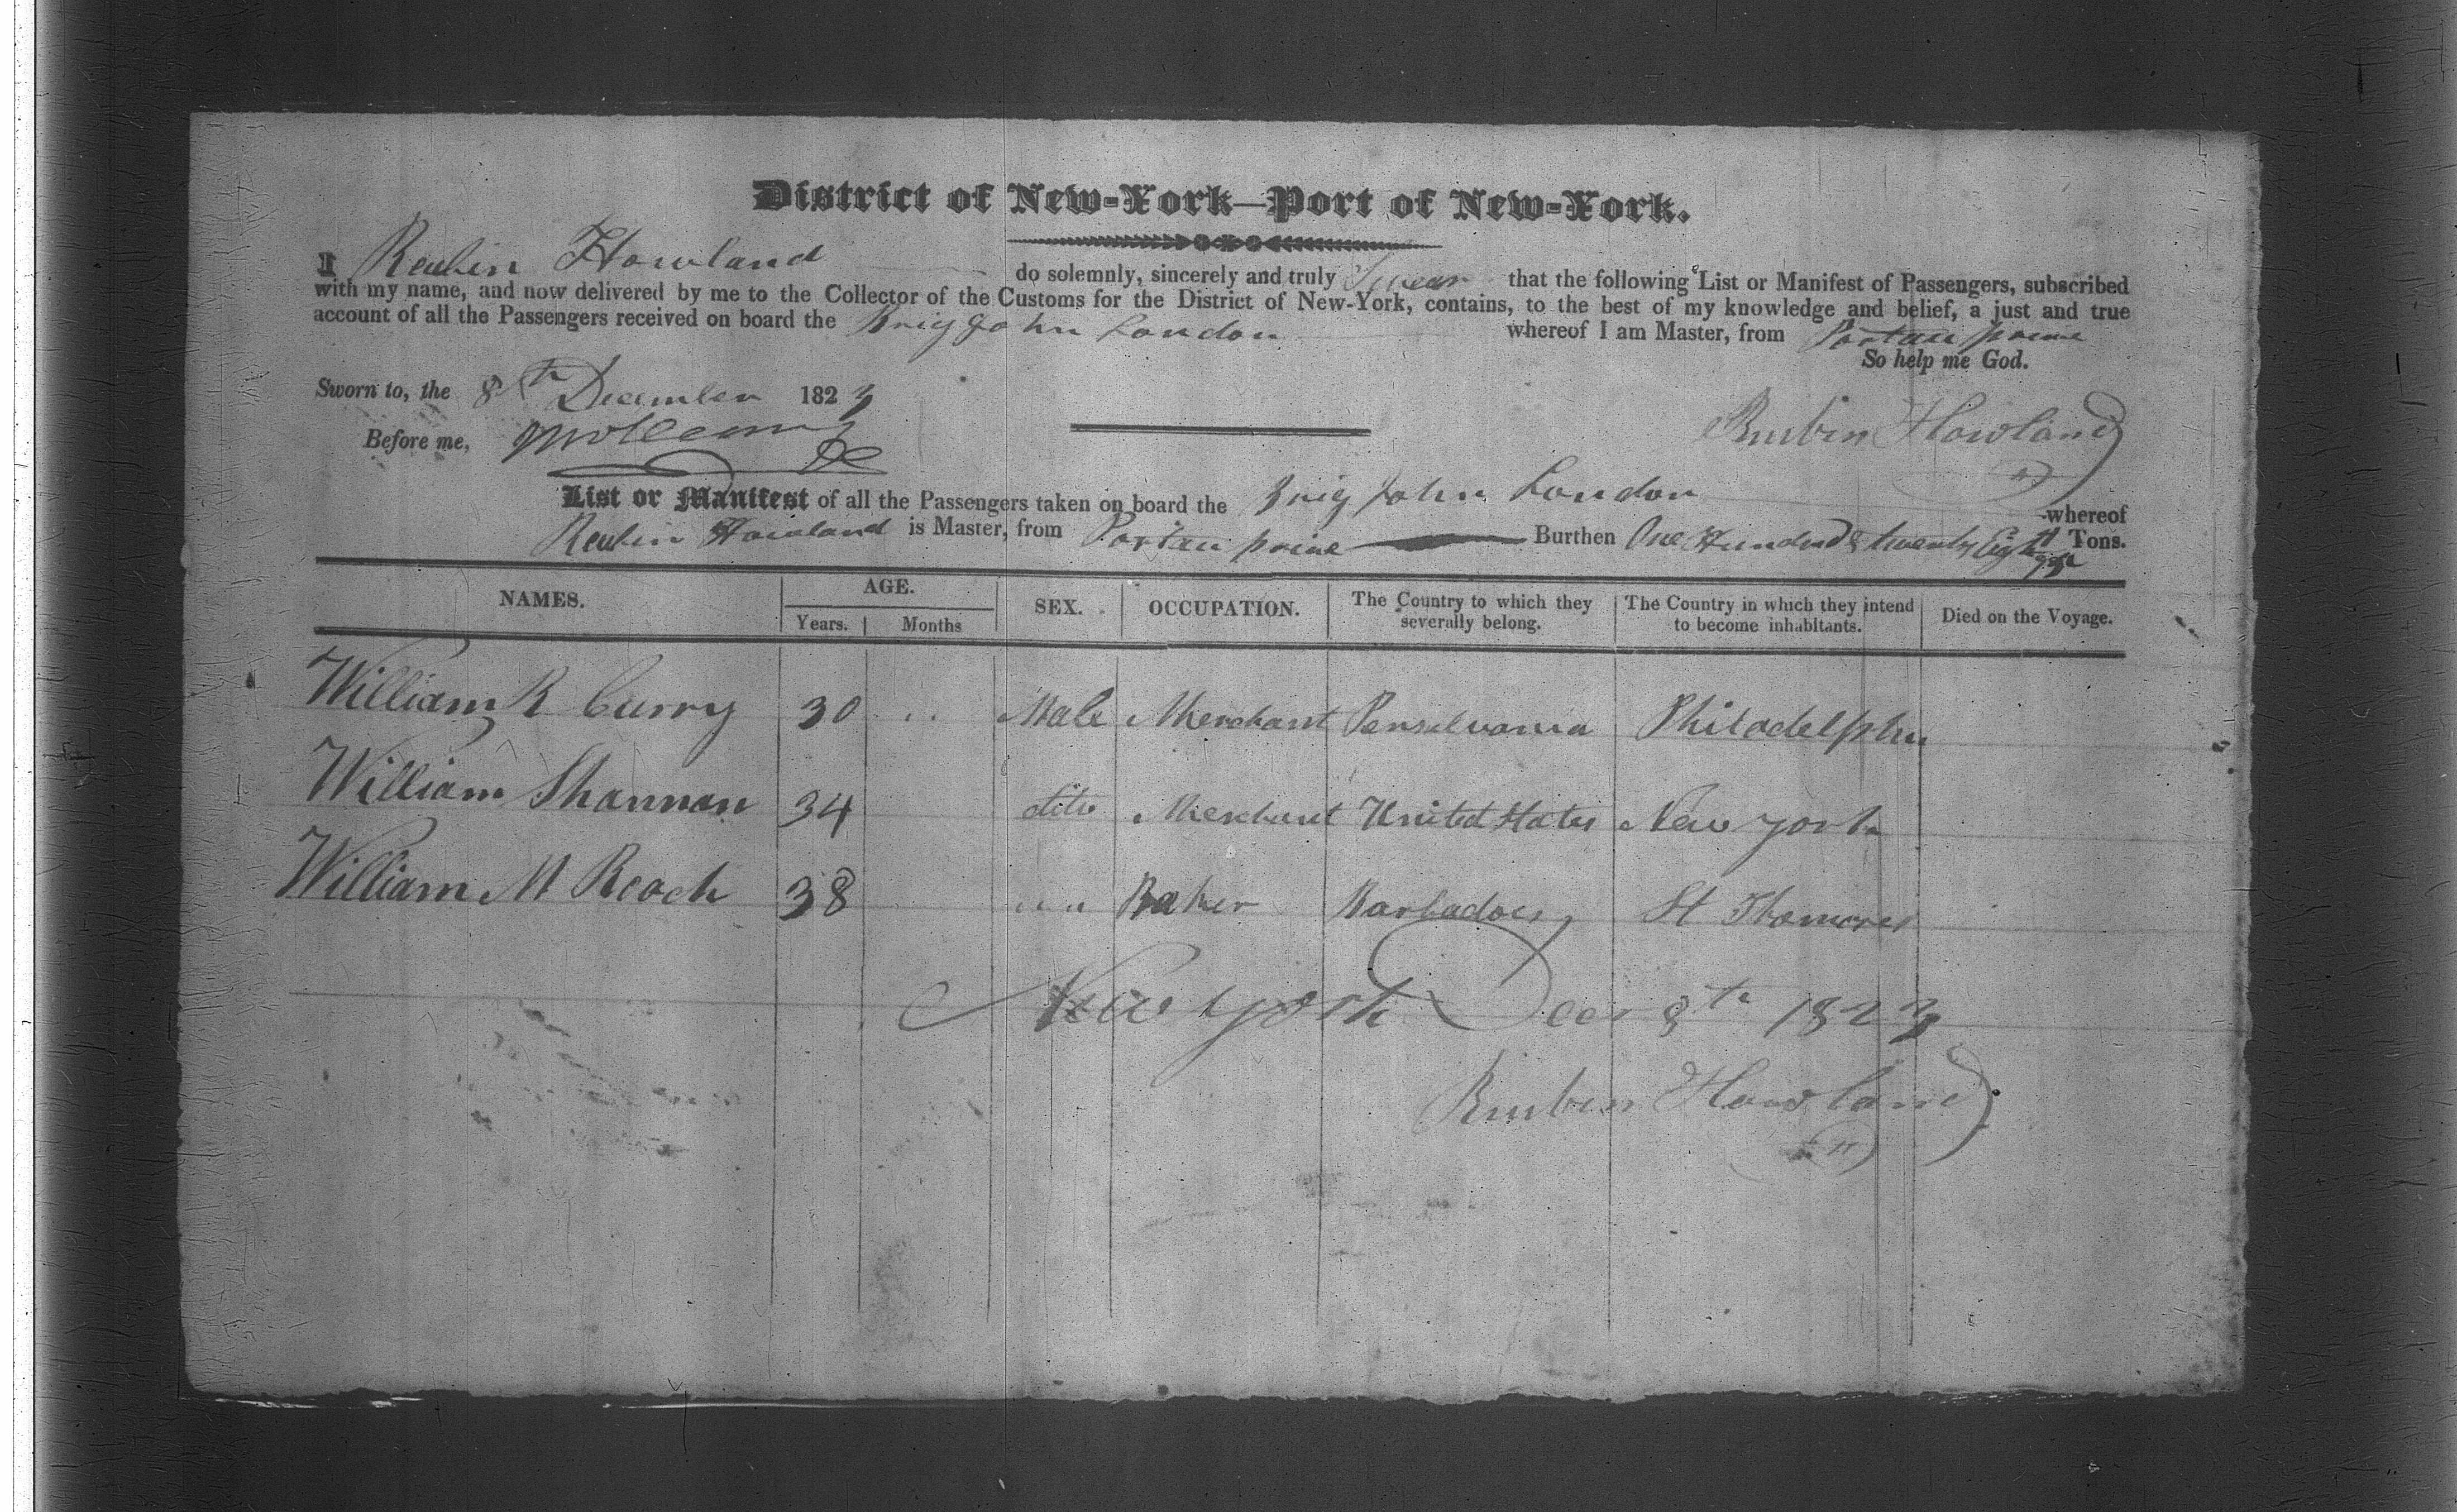 District of New-York—Port of New-York.
I Reubin Howland do solemnly, sincerely and truly Swear that the following List or Manifest of Passengers, subscribed
with my name, and now delivered by me to the Collector of the Customs for the District of New-York, contains, to the best of my knowledge and belief, a just and true
account of all the Passengers received on board the Brig John London whereof I am Master, from Portau prine
So help me God.
Sworn to, the 8th December 1823
Before me,
Reubin Howland
List or Manifest of all the Passengers taken on board the Brig John London whereof
Reubin Howland is Master, from Portau prine Burthen One Hundred & twenty Eight Tons.
NAMES. AGE. SEX. OCCUPATION. The Country to which they severally belong. The Country in which they intend to become inhabitants. Died on the Voyage.
Years. Months
William R Curry 30 .. Male Merchant Penselvania Philadelphia
William Shannan 34 ditto Merchant United States New York
William M Reach 38 " " " Baker Barbadoes St Thomases
New York Decr 8th 1823
Reubin Howland